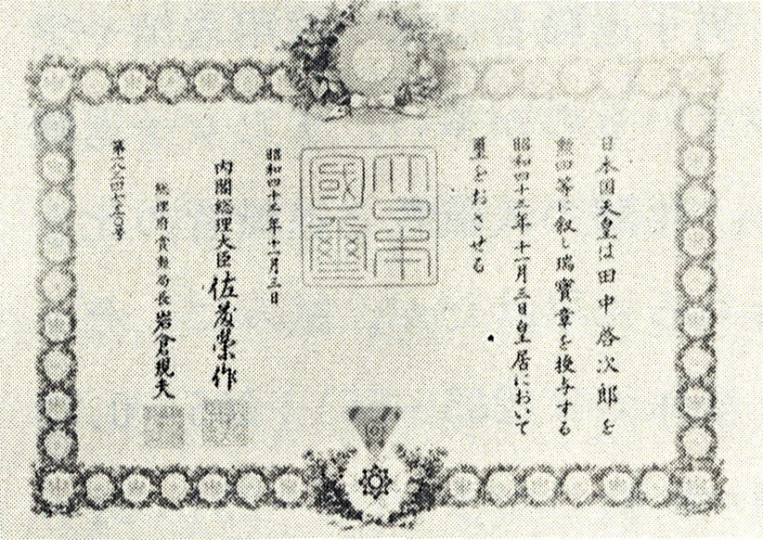 日本国天皇は田中啓次郎を
勲四等に叙し瑞寳章を授与する
昭和四十三年十一月三日皇居において
璽をおさせる
大日本
國璽
昭和四十三年十一月三日
内閣総理大臣 佐藤榮作
総理府賞勲局長 岩倉規夫